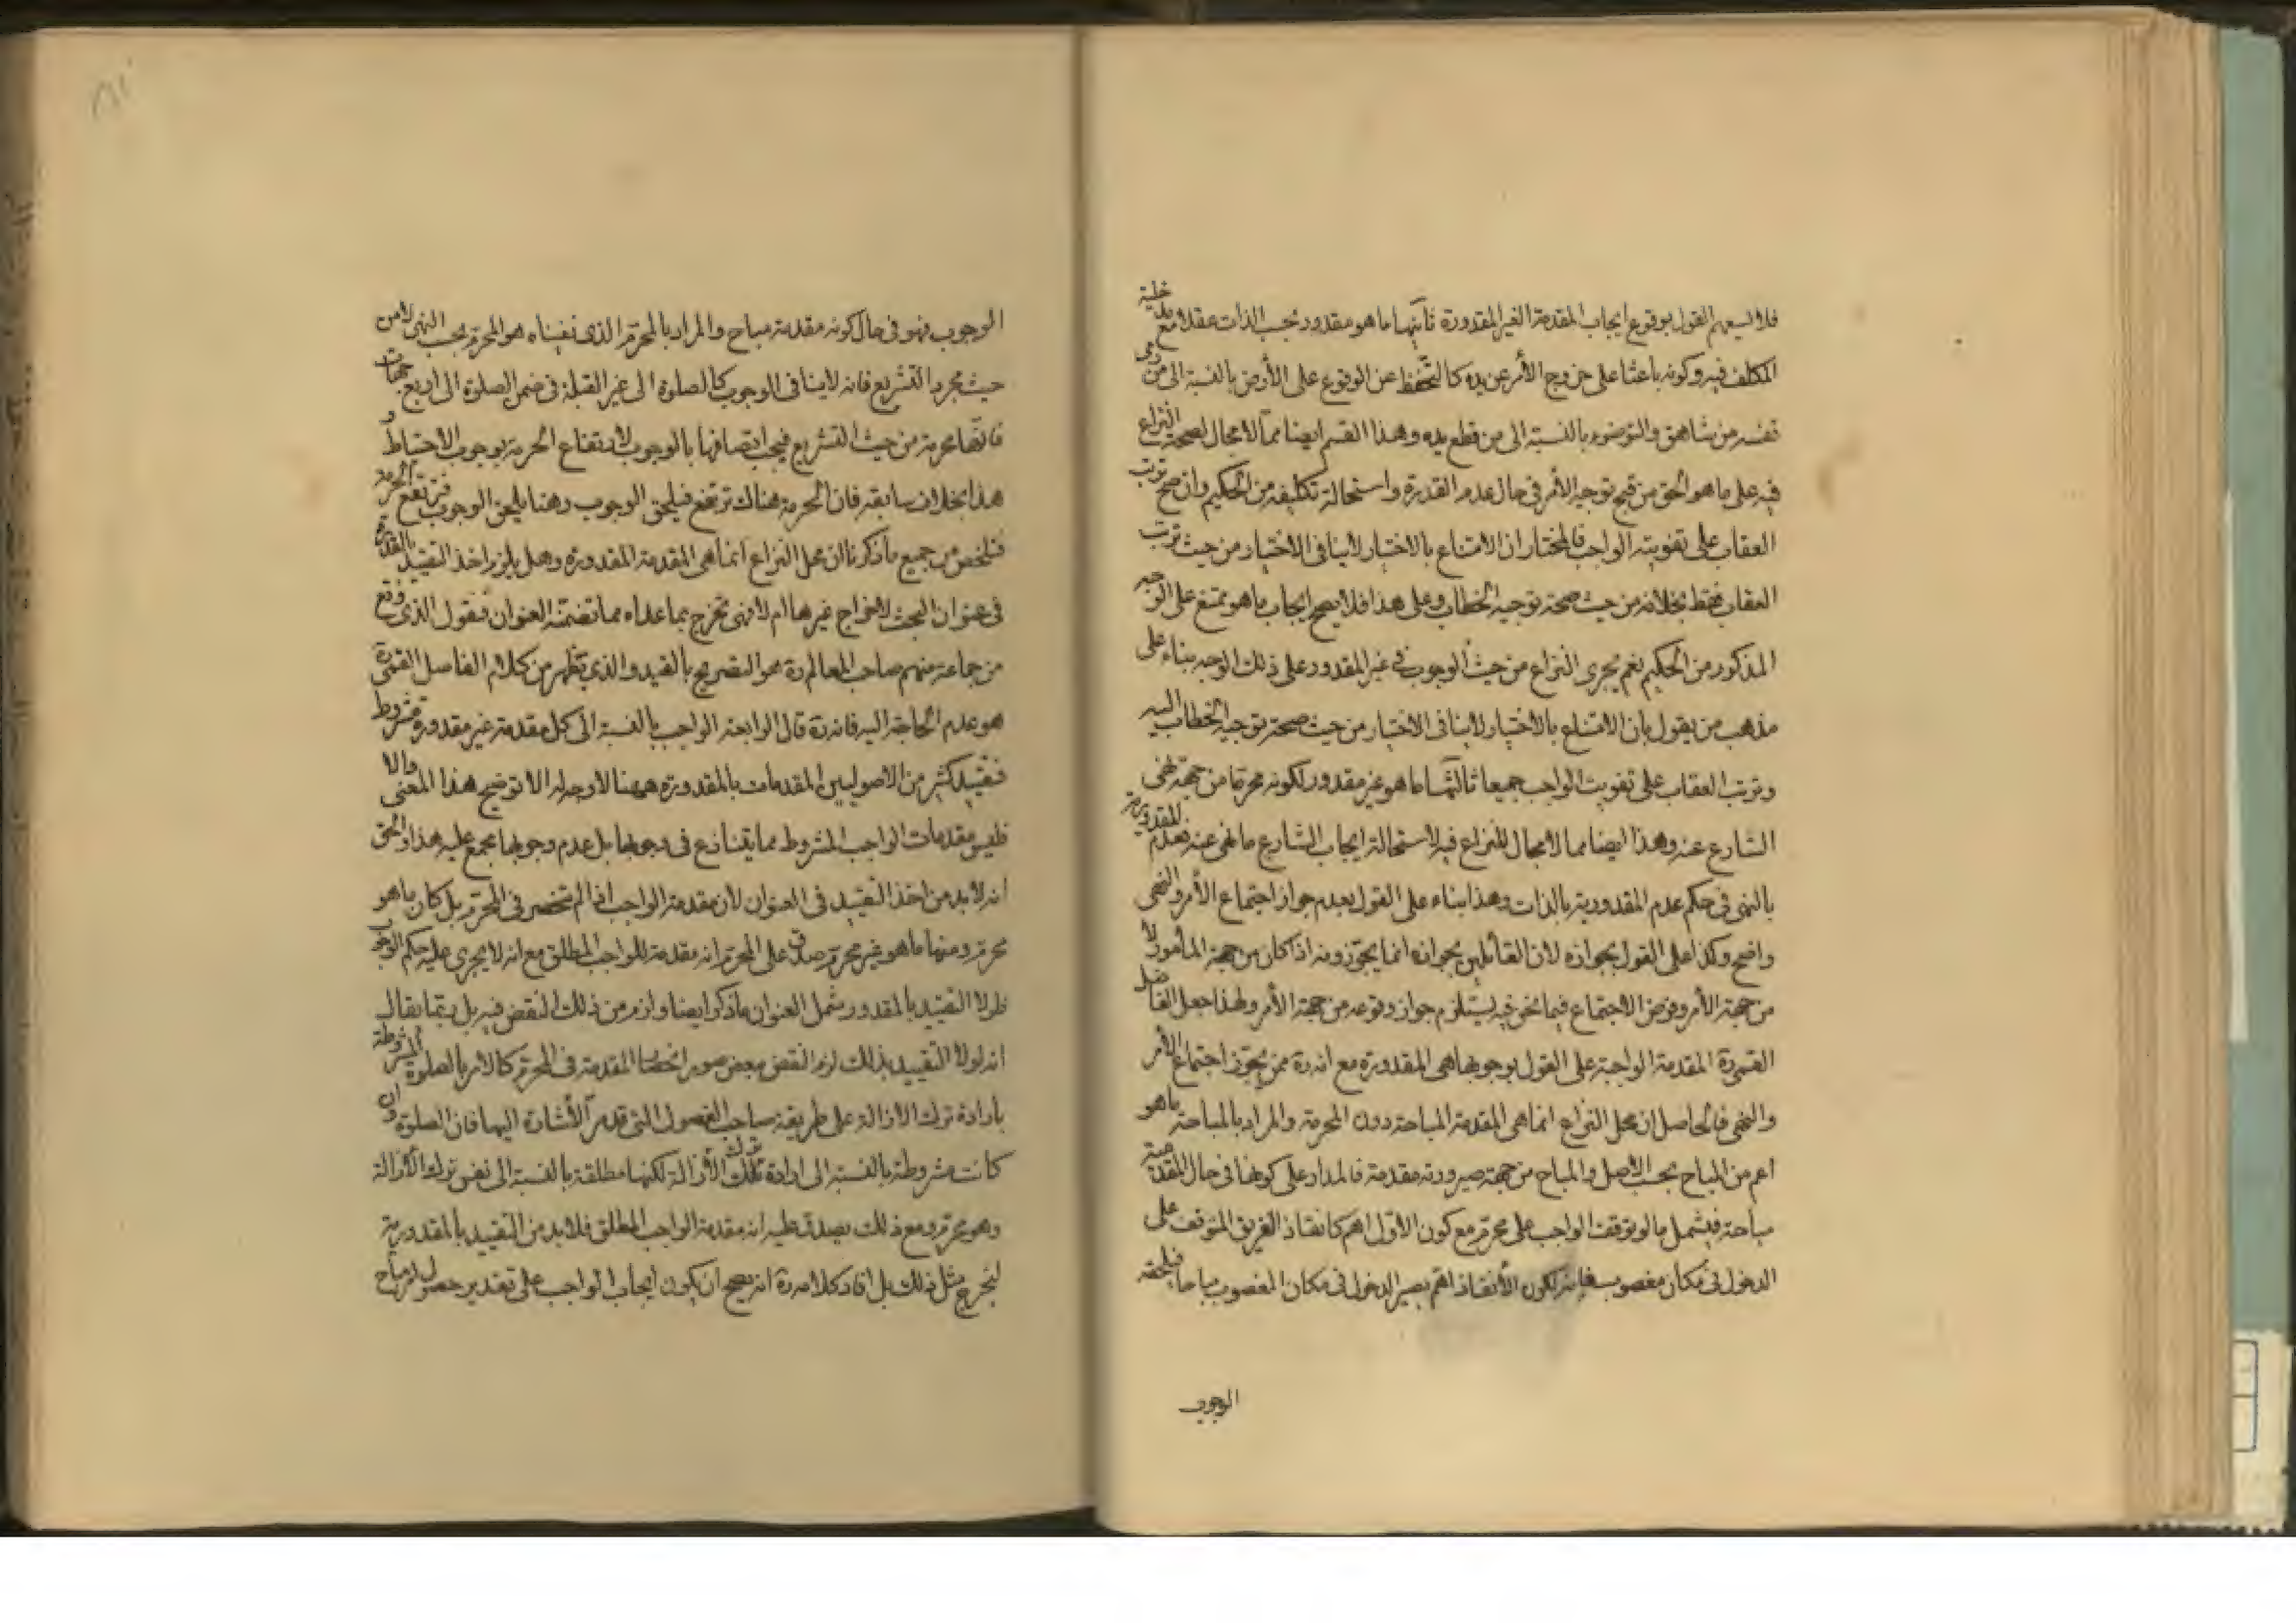 فلا يسعهم القول بوقوع ايجاب المقدمة الغير المقدورة ثانيها ما هو مقدور بحسب الذات عقلا مع مدخلية
المكلف فيه وكونه باعثا على خروج الأمر عن يده كالتحفظ عن الوقوع على الأرض بالنسبة الى من رمى
نفسه من شاهق والتوضوء بالنسبة الى من قطع يده وهذا القسم ايضا مما لا مجال لصحة النزاع
فيه على ما هو الحق من قبح توجيه الأمر في حال عدم القدرة واستحالة تكليفه من الحكيم وان صح ترتب
العقاب على تفويته الواجب فالمختار ان الامتناع بالاختيار لا ينافي الاختيار من حيث ترتب
العقاب فقط بخلافه من حيث صحة توجيه الخطاب وعلى هذا فلا يصح ايجاب ما هو ممتنع على الوجه
المذكور من الحكيم نعم يجرى النزاع من حيث الوجوب في غير المقدور على ذلك الوجه بناء على
مذهب من يقول بان الامتناع بالاختيار لا ينافي الاختيار من حيث صحة توجيه الخطاب اليه
وترتب العقاب على تفويت الواجب جميعا ثالثها ما هو غير مقدور لكونه محرما من جهة نهى
الشارع عنه وهذا ايضا مما لا مجال للنزاع فيه لاستحالة ايجاب الشارع ما نهى عنه فعدم المقدورية
بالنهى في حكم عدم المقدورية بالذات وهذا بناء على القول بعدم جواز اجتماع الأمر والنهى
واضح وكذا على القول بجوازه لان القائلين بجوازه انما يجوزونه اذا كان من جهة المأمور لا
من جهة الأمر وفرض الاجتماع فيما نحن فيه يستلزم جواز وقوعه من جهة الأمر ولهذا جعل الفاضل
القمى ره المقدمة الواجبة على القول بوجوبها هى المقدورة مع انه ره ممن يجوز اجتماع الأمر
والنهى فالحاصل ان محل النزاع انما هى المقدمة المباحة دون المحرمة والمراد بالمباحة ما هو
اعم من المباح بحسب الاصل والمباح من جهة صيرورته مقدمة فالمدار على كونها في حال المقدمية
مباحة فيشمل ما لو توقف الواجب على محرم مع كون الاول اهم كانقاذ الغريق المتوقف على
الدخول في مكان مغصوب فانه لكون الأنقاذ اهم يصير الدخول في مكان المغصوب مباحا فيلحقه
الوجوب
الوجوب فهو في حال كونه مقدمة مباح والمراد بالمحرم الذى نفيناه هو المحرم بحسب النهى لا من
حيث مجرد التشريع فانه لا ينافى الوجوب كالصلوة الى غير القبلة في ضمن الصلوة الى اربع جهات
فانها محرمة من حيث التشريع فيجب اتصافها بالوجوب لارتفاع الحرمة بوجوب الاحتياط و
هذا بخلاف سابقه فان الحرمة هناك ترتفع فيلحق الوجوب وهنا يلحق الوجوب فترتفع الحرمة
فتلخص من جميع ما ذكرنا ان محل النزاع انما هى المقدمة المقدورة وهل يلزم اخذ التقييد بالقدرة
في عنوان البحث لاخراج غيرها ام لا فهى تخرج بما عداه مما تضمنه العنوان فنقول الذى وقع
من جماعة منهم صاحب المعالم ره هو التصريح بالقيد والذى يظهر من كلام الفاضل القمى ره
هو عدم الحاجة اليه فانه ره قال الرابعة الواجب بالنسبة الى كل مقدمة غير مقدورة مشروط
فتقييد كثير من الاصوليين المقدمات بالمقدورة ههنا لا وجه له الا توضيح هذا المعنى والا
فليس مقدمات الواجب المشروط مما يتنازع في وجوبها بل عدم وجوبها مجمع عليه هذا والحق
انه لا بد من اخذ التقييد في العنوان لان مقدمة الواجب اذا لم تنحصر في المحرم بل كان ما هو
محرم ومنها ما هو غير محرم صدق على المحرم انه مقدمة للواجب المطلق مع انه لا يجرى عليه حكم الوجوب
فلولا التقييد بالمقدور يشمل العنوان ما ذكر ايضا ولزم من ذلك النقض فيه بل ربما يقال
انه لولا التقييد بذلك لزم النقض ببعض صور انحصار المقدمة في المحرم كالامر بالصلوة المشروطة
بارادة ترك الازالة على طريقة صاحب الفصول التى قد مر الأشارة اليها فان الصلوة وان
كانت مشروطة بالنسبة الى ارادة ترك الأزالة لكنها مطلقة بالنسبة الى نفس ترك الأزالة
وهو محرم ومع ذلك يصدق عليه انه مقدمة الواجب المطلق فلا بد من التقييد بالمقدورية
ليخرج مثل ذلك بل افاد كلامه ره انه يصح ان يكون ايجاب الواجب على تقدير حصول